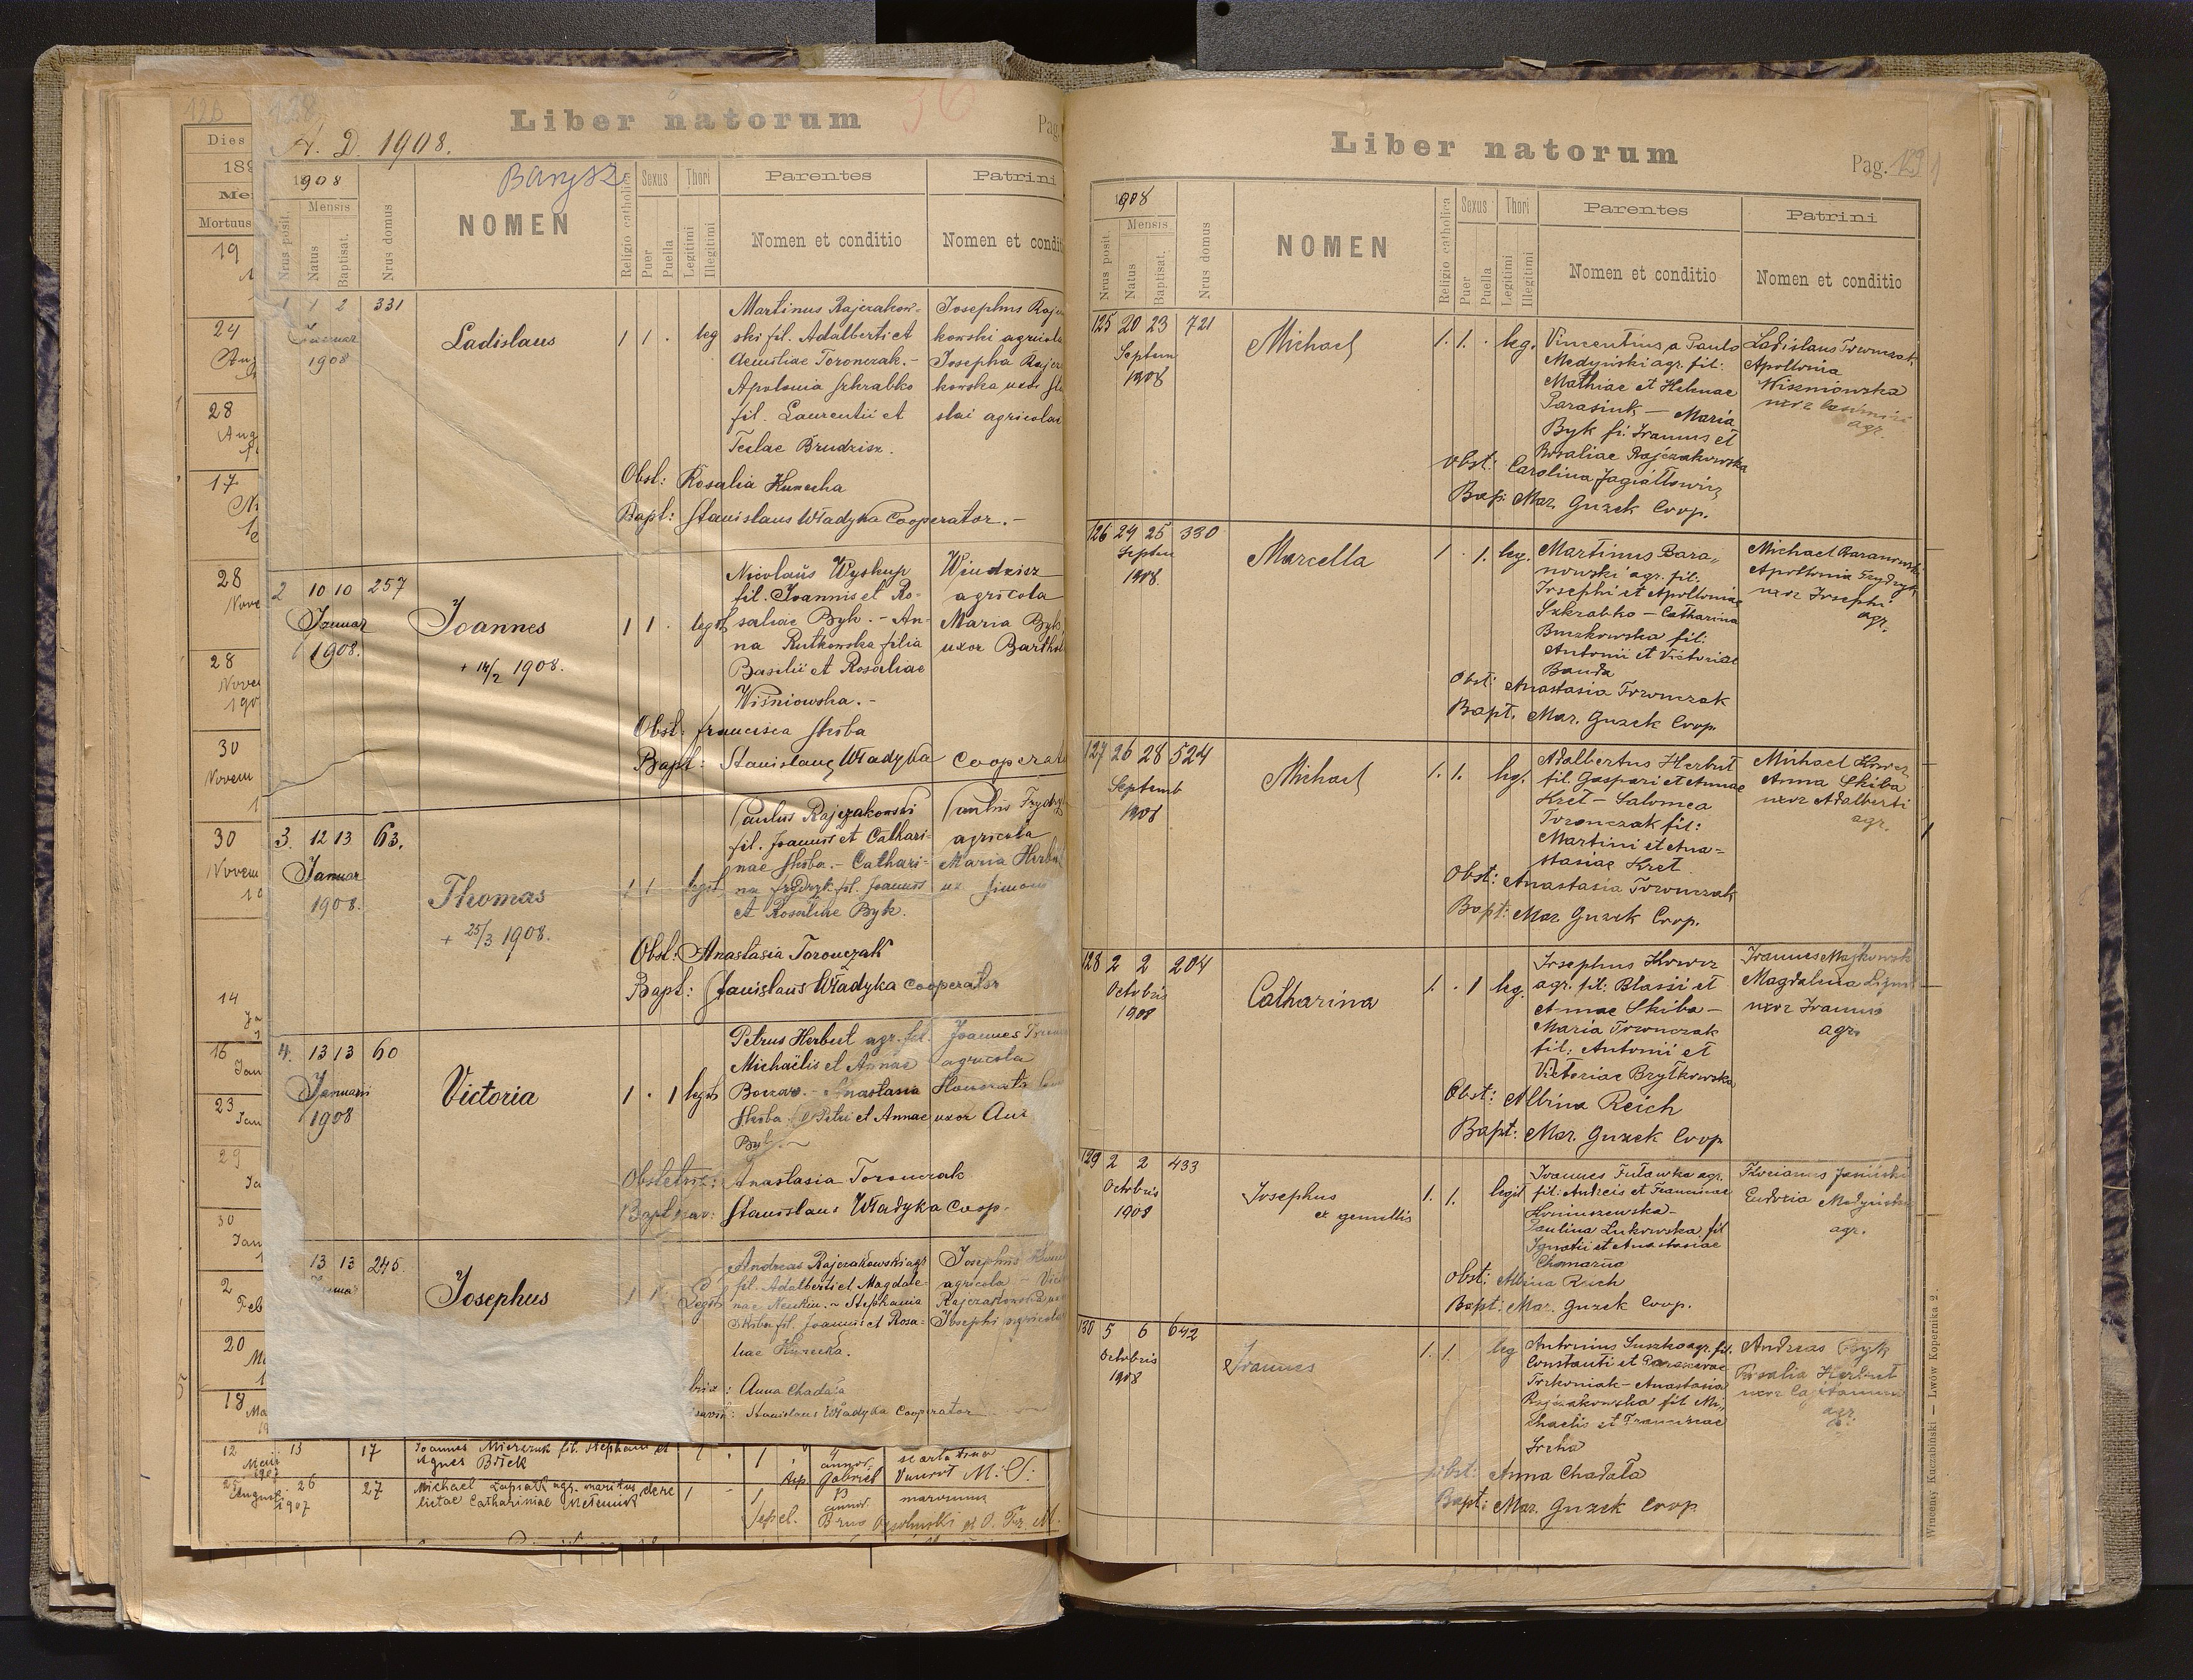 128
Liber natorum
36
Pag
A. D. 1908.
Barysz
1908
Mensis
Nrus posit.
Natus
Baptisat.
Nrus domus
NOMEN
Religio catholica
Sexus
Puer
Puella
Thori
Legitimi
Illegitimi
Parentes
Nomen et conditio
Patrini
Nomen et condit
1 1 2 331
Januar
1908
Ladislaus
1 1 . leg
Martinus Rajczakow-
ski fil. Adalberti et
Aemiliae Toronczak.-
Apolonia Szkrabko
fil. Laurentii et
Teclae Brudzisz.
Josephus Raj
kowski agricola
Josepha Rajcz
kowska uxor
slai agricolae
Obst: Rosalia Kunecka
Bapt: Stanislaus Władyka Cooperator.-
2 10 10 257
Januar
1908.
Joannes
+ 14/2 1908.
1 1 . legit
Nicolaus Wyskup
fil. Joannis et Ro-
saliae Byk.- An-
na Rutkowska filia
Basilii et Rosaliae
Wiśniowska.-
agricola
Maria Byk
uxor Barthol
Obst: Francisca Skiba
Bapt: Stanislaus Władyka Cooperat
3. 12 13 63.
Januar
1908.
Thomas
+ 25/3 1908.
1 1 legit
Paulus Rajczakowski
fil. Joannis et Cathari-
nae Skiba.- Cathari-
na Frydryk fil. Joannis
et Rosaliae Byk.
Paulus Frydry
agricola
Maria Herbut
ux Simonis
Obst: Anastasia Toronczak
Bapt: Stanislaus Władyka Cooperator
4. 13 13 60
Januari
1908
Victoria
1 . 1 legit
Petrus Herbut agr. fil.
Michaëlis et Annae
Anastasia
Skiba fil Petri et Annae
Byk.
Joannes
agricola
uxor
Obstetrix: Anastasia Toronczak
Stanislaus Władyka Coop.
13 13 245.
Josephus
1 1 Legit
Andreas Rajczakowski agr
fil. Adalberti et Magdale-
nae - Stephania
Skiba fil. Joannis et Rosa-
liae Kunecka.
Josephus
agricola - Vict
Rajczakowska
Josephi agricolae
brix: Anna Chadała
Stanislaus Władyka Cooperator
126
Dies
189
Me
Mortuus
19
24
Aug
28
Aug
17
28
Nove
28
Nove
190
30
Novem
30
Novem
14
Ja
16
Jan
23
Jan
29
Ja
30
Jan
2
Feb
20
18
Ma
12 13 17
Maii
1907
Joannes Mierzuk fil. Stephani et
Agnes Bilek
4
annor.
scarlatina
Gabriel Vanrot M. S.
25 26 27
August.
1907
Michael agr. maritus dere
lictae Catharinae
73
annor.
marasmus
Sepel.
Liber natorum
Pag. 129
1908
Mensis
Nrus posit.
Natus
Baptisat.
Nrus domus
NOMEN
Religio catholica
Sexus
Puer
Puella
Thori
Legitimi
Illegitimi
Parentes
Nomen et conditio
Patrini
Nomen et conditio
125 20 23 721
Septem
1908
Michael
1. 1. . leg.
Vincentius a Paulo
Medyński agr. fil:
Mathiae et Helenae
Parasiuk - Maria
Byk fi. Joannis et
Rosaliae Rajczakowska
Ladislaus Toronczak
Apollonia
Wiszniowska
uxor Casimiri
agr.
Obst: Carolina Jagiałłowicz
Bap: Mar. Guzek Coop.
126 24 25 330
Septem
1908.
Marcella
1 . 1. leg.
Martinus Bara„
nowski agr. fil:
Josephi et Apolloniae
Szkrabko - Catharina
Buczkowska fil:
Antonii et Victoriae
Banda
Michael Baranowski
Apollonia Frydryk
uxor Josephi
agr.
Obst: Anastasia Toronczak
Bapt. Mar. Guzek Coop.
127 26 28 524
Septemb
1908
Michael
1. 1. leg.
Adalbertus Herbut
fil. Gaspari et Annae
Kret - Salomea
Toronczak fil:
Martini et Ana=
stasiae Kret
Michael Kowcz
Anna Skiba
uxor Adalberti
agr.
Obst: Anastasia Toronczak
Bapt: Mar. Guzek Coop.
128 2 2 204
Octobris
1908
Catharina
1. . 1 leg.
Josephus Kowcz
agr. fil: Blasii et
Annae Skiba -
Maria Toronczak
fil: Antonii et
Victoriae Brytkowska
Joannes Majkowsk
Magdalena
uxor Joannis
agr.
Obst: Albina Reich
Bapt: Mar. Guzek Coop
129 2 2 433
Octobris
1908
Josephus
ex gemellis
1. 1. legit
Joannes Futawka agr.
fil: Andreis et Franciscae
Honiuszewska -
Paulina Lukowska fil
Ignatii et Anastasiae
Florianus Jasiński
Eudoxia Medyńska
agr.
Obst: Albina Reich
Bapt: Mar. Guzek Coop.
130 5 6 642
Octobris
1908
Joannes
1. 1. leg
Antonius Suszko agr. fil.
Constanti et Parascevae
Trzkoniak - Anastasia
Rajczakowska fil. Mi,
chaelis et Franciscae
Andreas Byk
Rosalia Herbut
uxor Cajetanus
agr
Obst: Anna Chadała
Bapt: Mar. Guzek Coop
Wincenty Kuczabiński — Lwów Kopernika 2.